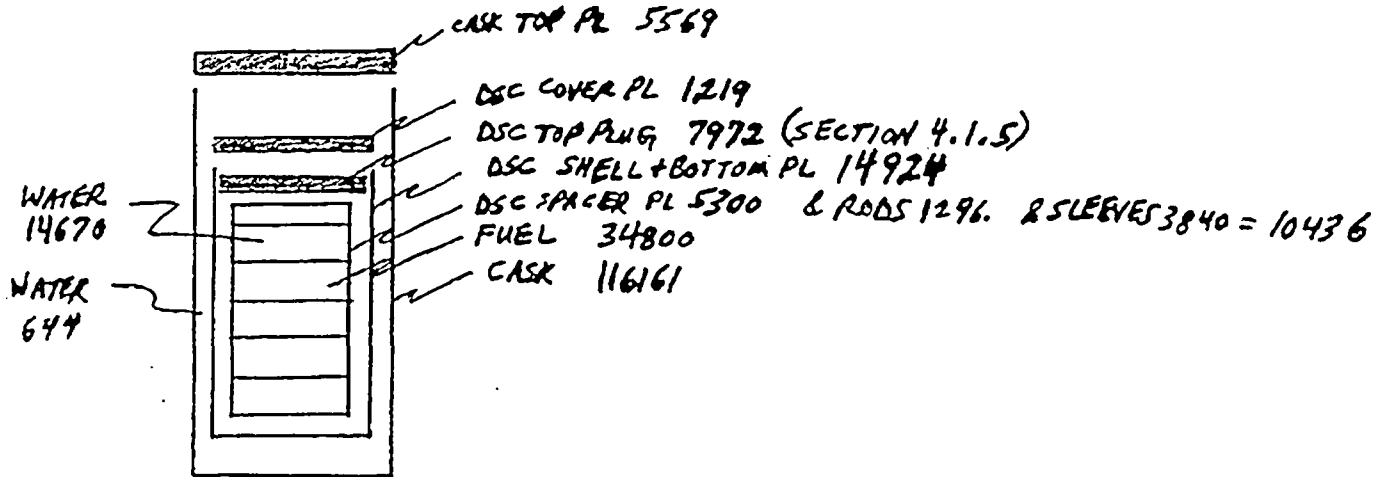 CASK TOP PL 5569
DSC COVER PL 1219
DSC TOP PLUG 7972 (SECTION 4.1.5)
DSC SHELL + BOTTOM PL 14924
DSC SPACER PL 5300 & RODS 1296. & SLEEVES 3840 = 10436
FUEL 34800
CASK 116161
WATER
14670
WATER
644